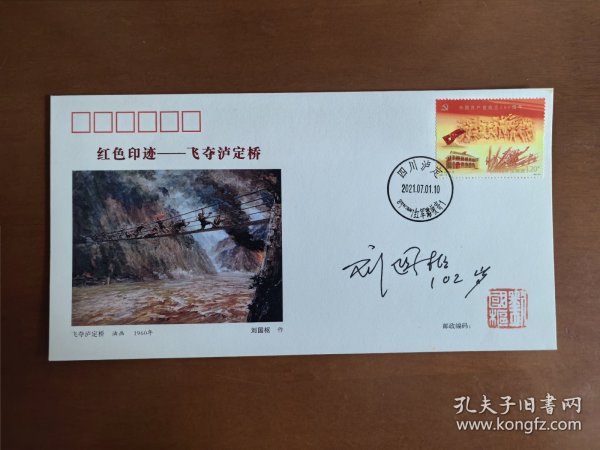 中国共产党成立100周年
1.20
元
红色印迹——飞夺泸定桥
四川 泸定
2021.07.01.10
刘国枢
102岁
刘国枢
飞夺泸定桥 油画 1960年 刘国枢 作
邮政编码:
孔夫子旧书网
www.kongfz.com